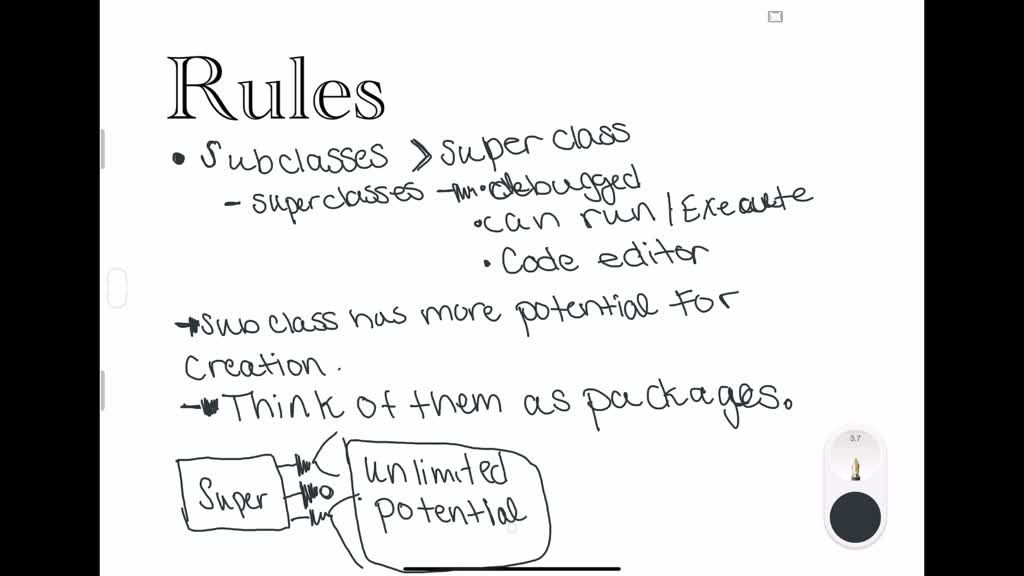 Rules
• Subclasses > Super class
- superclasses → • debugged
• can run / Execute
• Code editor
→ Subclass has more potential for
creation.
→ Think of them as packages.
Super
unlimited
potential
3.7